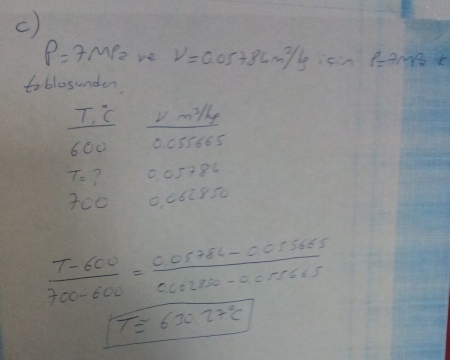 c)
P=7MPa ve V=0.05784m³/kg için P=7MPa
tablosundan,
T,°C V m³/kg
600 0.055665
T=? 0,05784
700 0,062850
T-600 / 700-600 = 0.05784-0.055665 / 0.062850-0.055665
T≅ 630.27°C